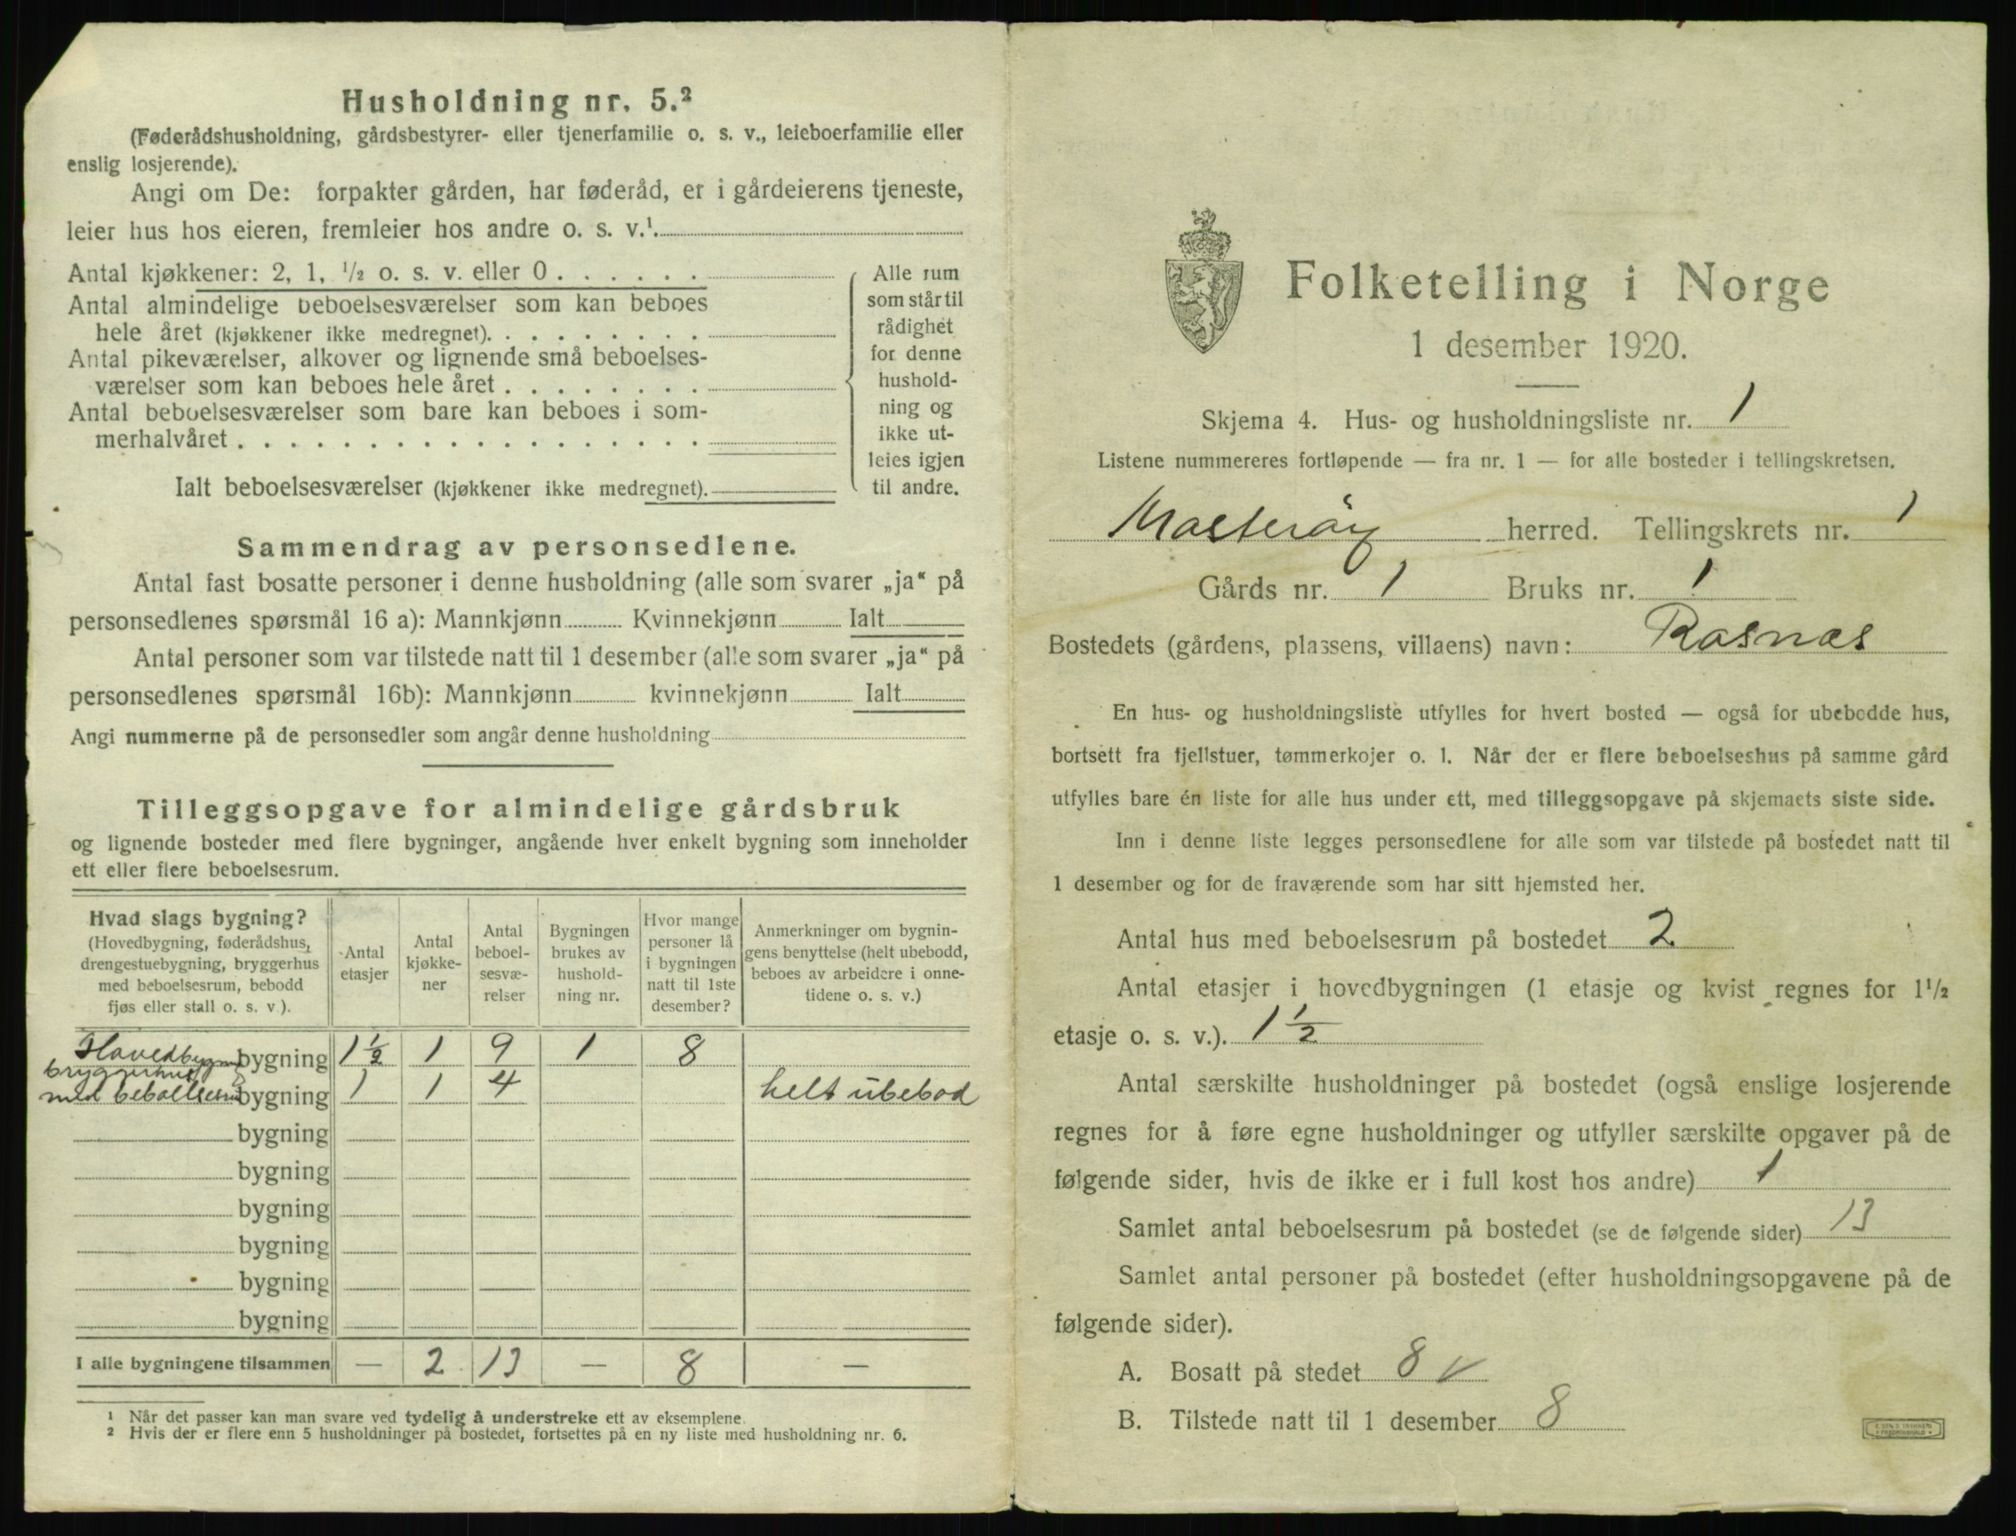 Husholdning nr. 5.²
(Føderådshusholdning, gårdsbestyrer- eller tjenerfamilie o. s. v., leieboerfamilie eller
enslig losjerende).
Angi om De: forpakter gården, har føderåd, er i gårdeierens tjeneste,
leier hus hos eieren, fremleier hos andre o. s. v.¹.
Antal kjøkkener: 2, 1, ½ o. s. v. eller 0 . . . . . .
Antal almindelige beboelsesværelser som kan beboes
hele året (kjøkkener ikke medregnet). . . . . . . . .
Antal pikeværelser, alkover og lignende små beboelses-
værelser som kan beboes hele året . . . . . . . .
Antal beboelsesværelser som bare kan beboes i som-
merhalvåret . . . . . . . . . . . . . . . . . .
Ialt beboelsesværelser (kjøkkener ikke medregnet).
Alle rum
som står til
rådighet
for denne
hushold-
ning og
ikke ut-
leies igjen
til andre.
Sammendrag av personsedlene.
Antal fast bosatte personer i denne husholdning (alle som svarer „ja“ på
personsedlenes spørsmål 16 a): Mannkjønn Kvinnekjønn Ialt
Antal personer som var tilstede natt til 1 desember (alle som svarer „ja“ på
personsedlenes spørsmål 16b): Mannkjønn kvinnekjønn Ialt
Angi nummerne på de personsedler som angår denne husholdning
Tilleggsopgave for almindelige gårdsbruk
og lignende bosteder med flere bygninger, angående hver enkelt bygning som inneholder
ett eller flere beboelsesrum.
Hvad slags bygning?
(Hovedbygning, føderådshus,
drengestuebygning, bryggerhus
med beboelsesrum, bebodd
fjøs eller stall o. s. v.).
Antal
etasjer
Antal
kjøkke-
ner
Antal
beboel-
sesvæ-
relser
Bygningen
brukes av
hushold-
ning nr.
Hvor mange
personer lå
i bygningen
natt til 1ste
desember?
Anmerkninger om bygnin-
gens benyttelse (helt ubebodd,
beboes av arbeidere i onne-
tidene o. s. v.)
Hovedbygn bygning 1½ 1 9 1 8
bryggerhus
med beboelsesrum bygning 1 1 4 helt ubebod
bygning
bygning
bygning
bygning
bygning
bygning
I alle bygningene tilsammen — 2 13 — 8 —
¹ Når det passer kan man svare ved tydelig å understreke ett av eksemplene.
² Hvis der er flere enn 5 husholdninger på bostedet, fortsettes på en ny liste med husholdning nr. 6.
Folketelling i Norge
1 desember 1920.
Skjema 4. Hus- og husholdningsliste nr. 1
Listene nummereres fortløpende — fra nr. 1 — for alle bosteder i tellingskretsen.
Mosterøy herred. Tellingskrets nr. 1
Gårds nr. 1 Bruks nr. 1
Bostedets (gårdens, plassens, villaens) navn: Rasnes
En hus- og husholdningsliste utfylles for hvert bosted — også for ubebodde hus,
bortsett fra fjellstuer, tømmerkojer o. l. Når der er flere beboelseshus på samme gård
utfylles bare én liste for alle hus under ett, med tilleggsopgave på skjemaets siste side.
Inn i denne liste legges personsedlene for alle som var tilstede på bostedet natt til
1 desember og for de fraværende som har sitt hjemsted her.
Antal hus med beboelsesrum på bostedet 2
Antal etasjer i hovedbygningen (1 etasje og kvist regnes for 1½
etasje o. s. v.). 1½
Antal særskilte husholdninger på bostedet (også enslige losjerende
regnes for å føre egne husholdninger og utfyller særskilte opgaver på de
følgende sider, hvis de ikke er i full kost hos andre) 1
Samlet antal beboelsesrum på bostedet (se de følgende sider) 13
Samlet antal personer på bostedet (efter husholdningsopgavene på de
følgende sider).
A. Bosatt på stedet 8 v
B. Tilstede natt til 1 desember 8